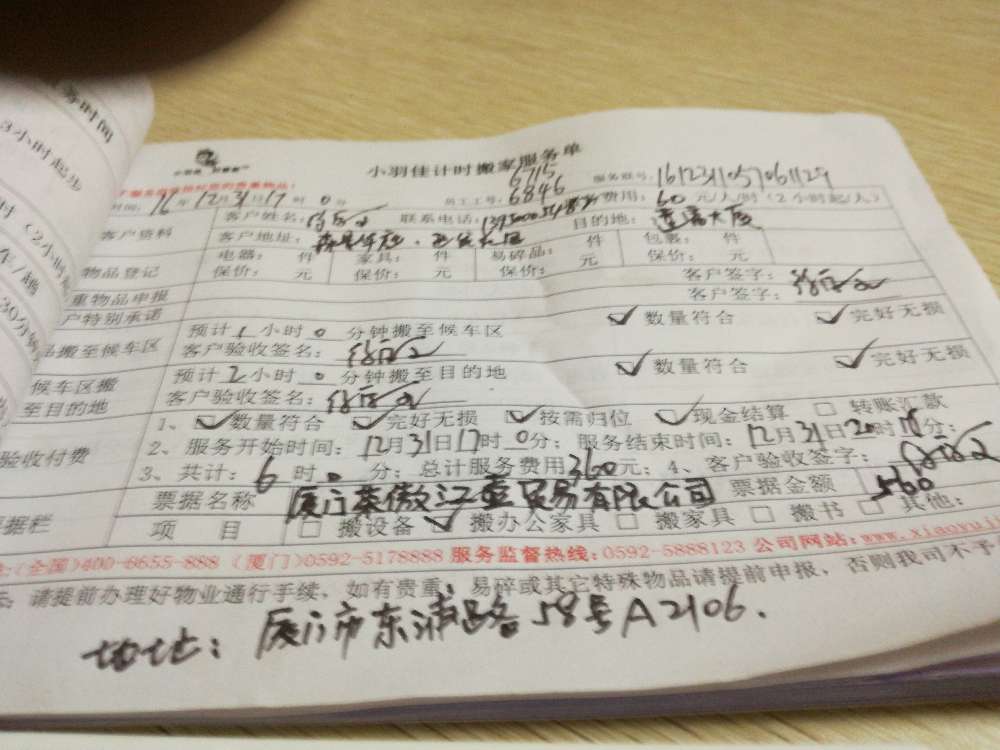 等时间
3小时起步
(2小时
车/趟
30分钟
小羽佳计时搬家服务单
6715
服务联号:
员工工号: 6846 费用: 60 元/人/时(2小时起/人)
时间: 16年12月31日17时0分
客户资料 客户姓名: 联系电话: 目的地:
客户地址:
物品登记 电器: 件 家具: 件 易碎品: 件 包裹: 件
保价: 元 保价: 元 保价: 元 保价: 元
重物品申报 客户签字:
户特别承诺 客户签字:
品搬至候车区 预计1小时0分钟搬至候车区 ✓数量符合 ✓完好无损
客户验收签名:
候车区搬至目的地 预计2小时0分钟搬至目的地 ✓数量符合 ✓完好无损
客户验收签名:
验收付费 1、✓数量符合 ✓完好无损 ✓按需归位 ✓现金结算 □转账汇款
2、服务开始时间:12月31日17时0分;服务结束时间:12月31日20时 分;
3、共计:6时0分;总计服务费用360元;4、客户验收签字:
票据栏 票据名称 厦门 贸易有限公司 票据金额 560
项目 □搬设备 ✓搬办公家具 □搬家具 □搬书 □其他:
(全国)400-6655-888 (厦门)0592-5178888 服务监督热线:0592-5888123 公司网站:www.xiaoyuj
请提前办理好物业通行手续,如有贵重,易碎或其它特殊物品请提前申报,否则我司不予
地址:厦门市东浦路58号A2106.